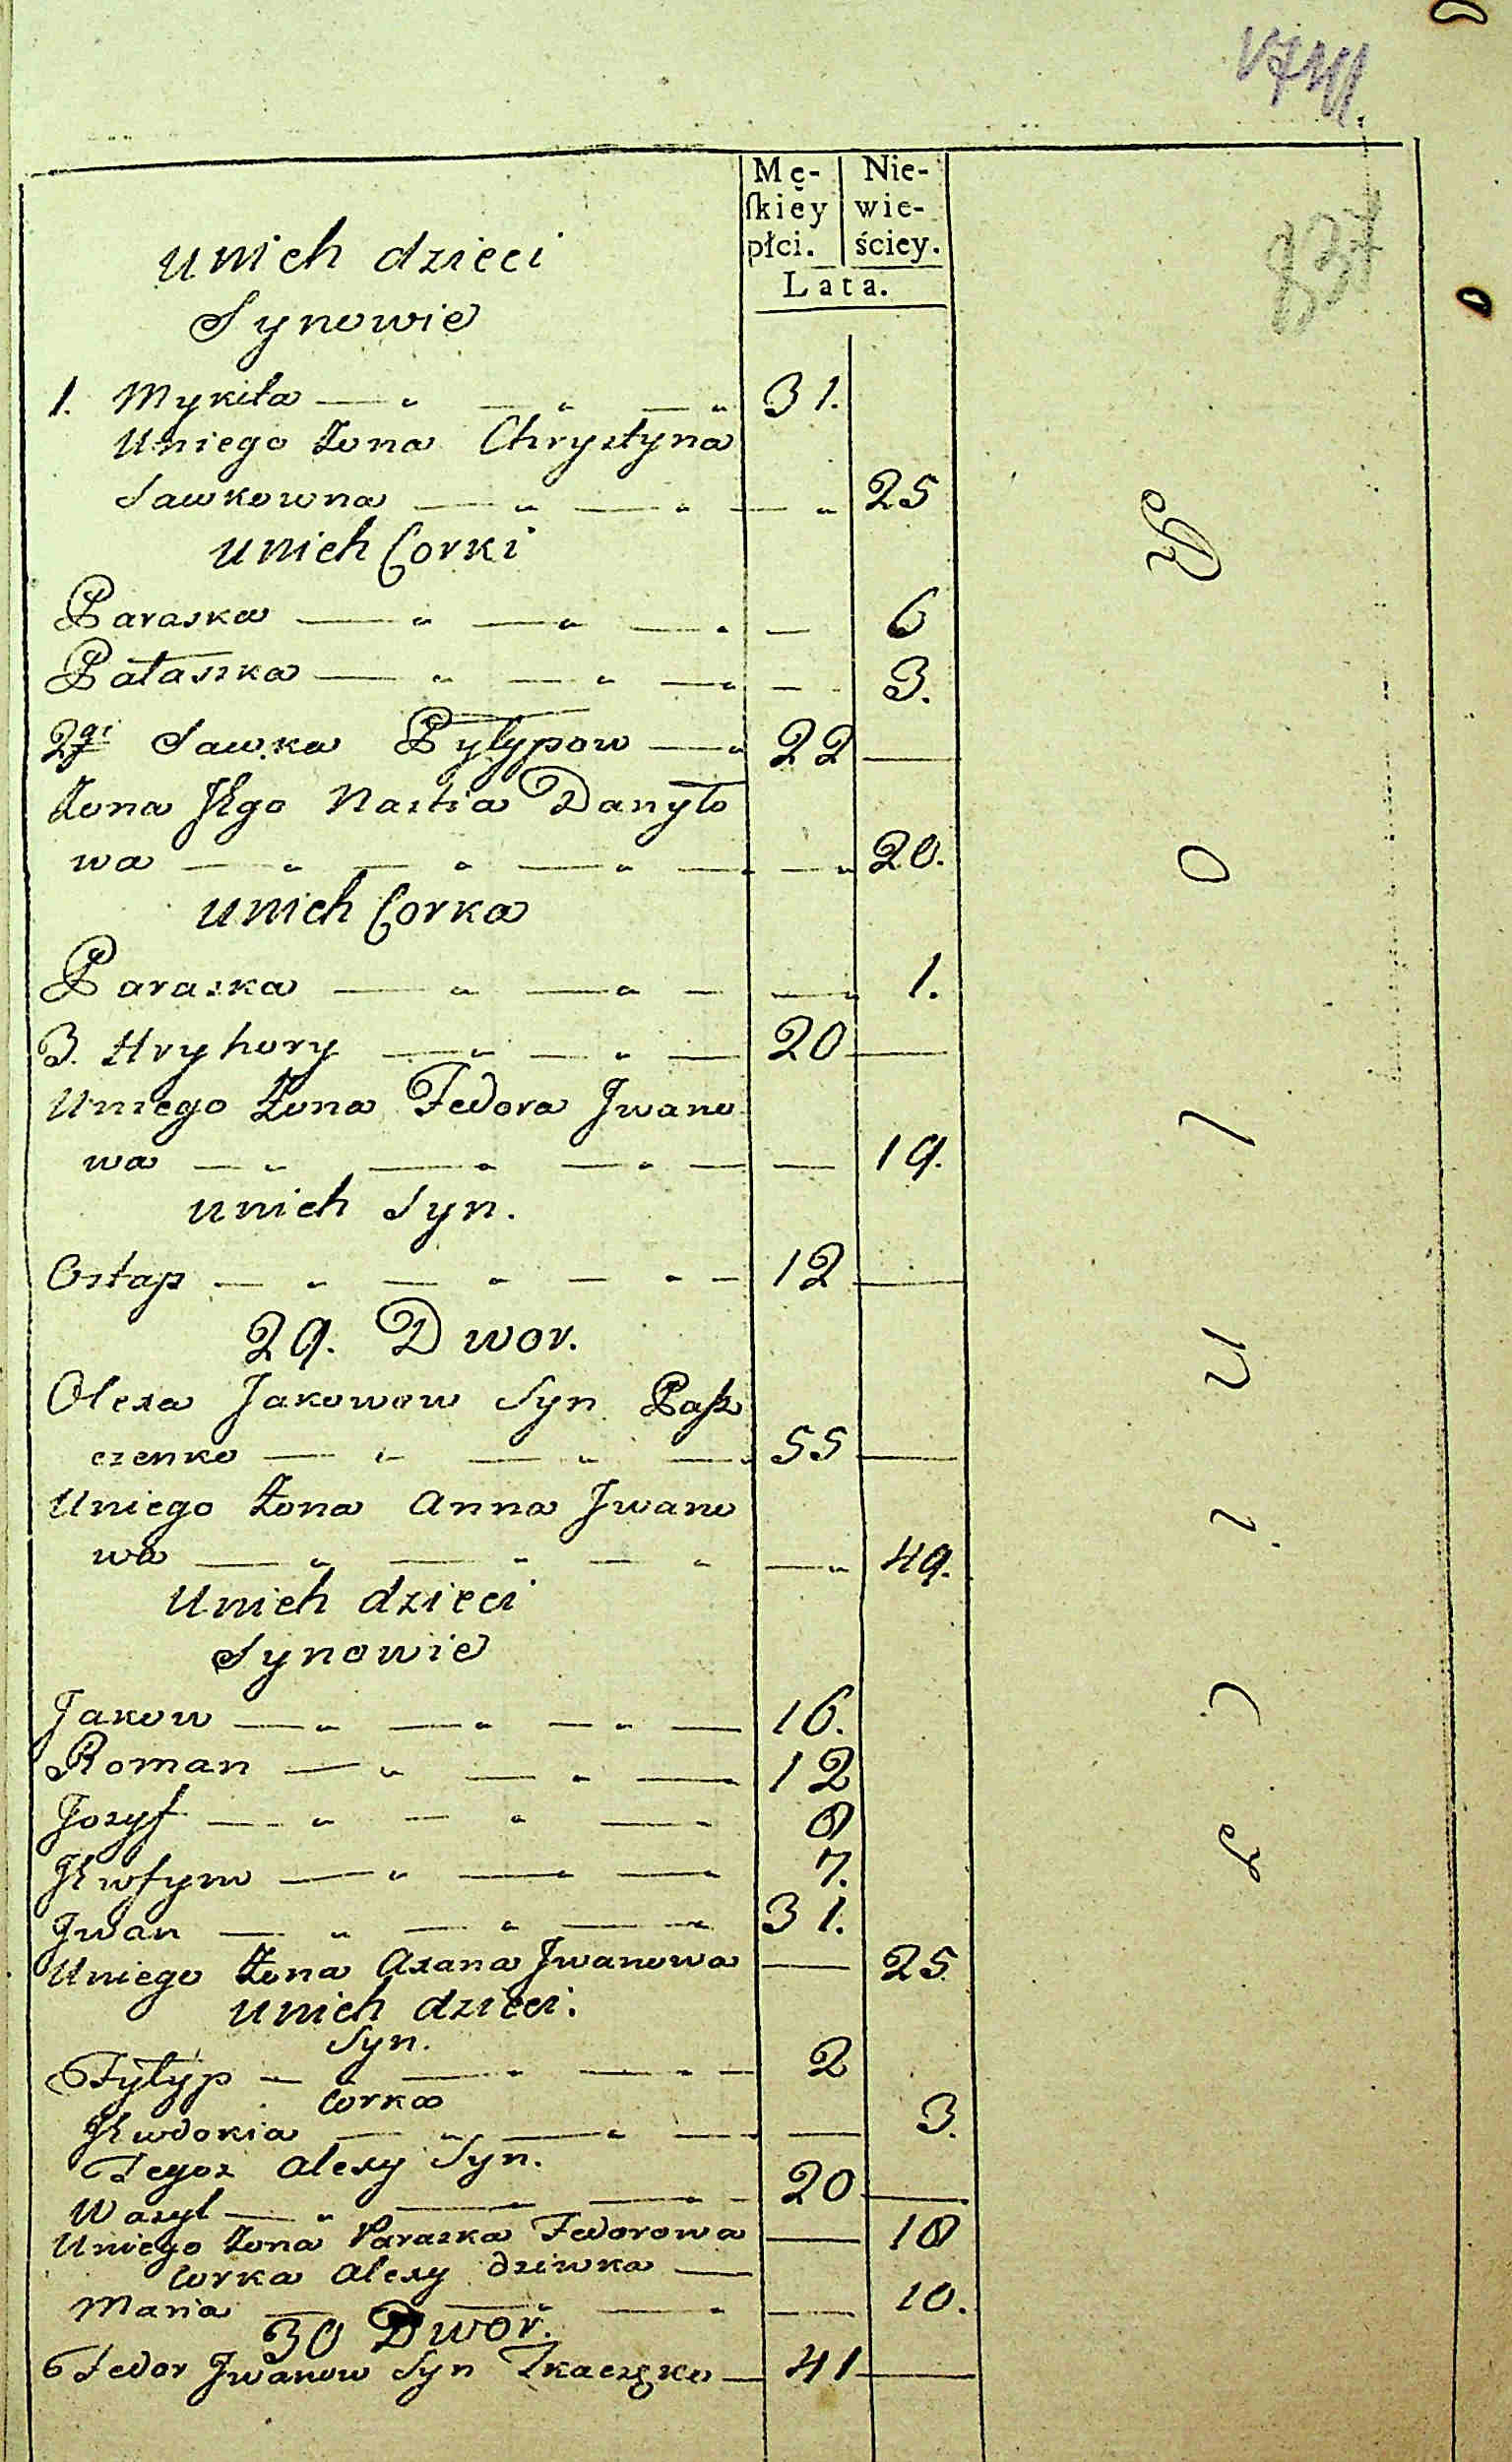 837
Mę-
ſkiey
płci.
Nie-
wie-
ściey.
Lata.
unich dzieci
Synowie
1. Mykita — „ — „ — „ 31.
Uniego Żona Chrystyna
Sawkowna — „ — „ — „ 25
unich Corki
Paraska — „ — „ — . — 6
Pałaszka — „ — „ — „ — 3.
2gi Sawka Pylypow — „ 22 —
Żona Jego Nastia Danyło
wa — „ — „ — „ — . — „ 20.
unich Corka
Paraska — „ — „ — — „ 1.
3. Hryhory — „ — „ — 20 —
Uniego Żona Fedora Jwano
wa — „ — „ — „ — — 19.
unich Syn.
Ostap — „ — „ — „ — 12 —
29. Dwor.
Olexa Jakowow Syn Pasz
czenko — „ — „ — „ 55 —
Uniego Żona Anna Jwano
wa — „ — „ — „ — „ 49.
Unich dzieci
Synowie
Jakow — „ — „ — „ — 16.
Roman — „ — „ — 12
Jozyf — „ — „ — 8
Jewfym — „ — „ — „ 7.
Jwan — „ — „ — „ 31.
Uniego Żona Axana Jwanowa — 25
unich dzieci.
Syn.
Fyłyp — „ — „ — „ — 2
Corka
Jewdokia — „ — „ — „ — 3.
Tegoz Alexy Syn.
Wasyl — „ — „ — „ — 20 —
Uniego Żona Paraska Fedorowa — 18
Corka Alexy Dziwka —
Maria — — „ — „ — 10.
30 Dwor.
Fedor Jwanow Syn Tkaczenko — 41 —